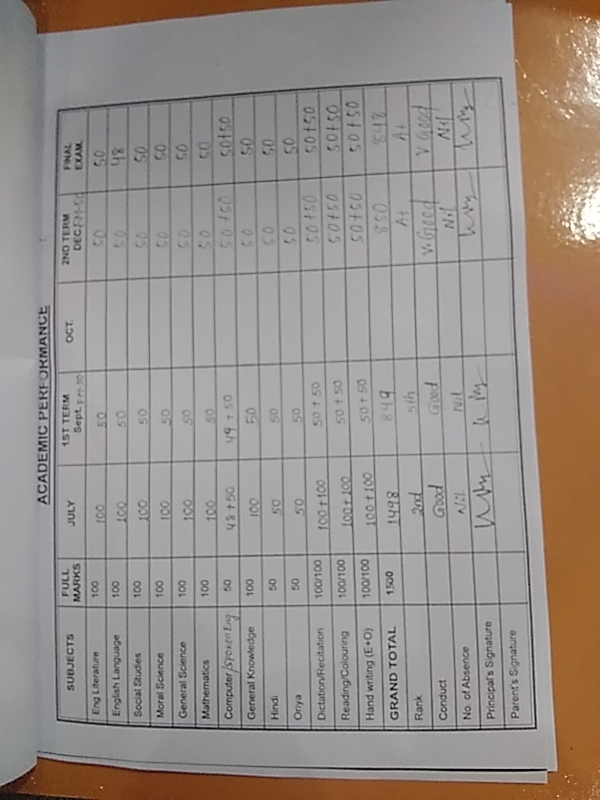 ACADEMIC PERFORMANCE
SUBJECTS FULL MARKS JULY 1ST TERM Sept. F.M-50 OCT. 2ND TERM DEC. F.M-50 FINAL EXAM.
Eng Literature 100 100 50 50 50
English Language 100 100 50 50 48
Social Studies 100 100 50 50 50
Moral Science 100 100 50 50 50
General Science 100 100 50 50 50
Mathematics 100 100 50 50 50
Computer/Spoken Eng 50 48+50 49+50 50+50 50+50
General Knowledge 100 100 50 50 50
Hindi 50 50 50 50 50
Oriya 50 50 50 50 50
Dictation/Recitation 100/100 100+100 50+50 50+50 50+50
Reading/Colouring 100/100 100+100 50+50 50+50 50+50
Hand writing (E+O) 100/100 100+100 50+50 50+50 50+50
GRAND TOTAL 1,500 1498 849 850 848
Rank 2nd 5th A+ A+
Conduct Good Good V.Good V Good
No. of Absence Nil Nil Nil Nil
Principal's Signature
Parent's Signature